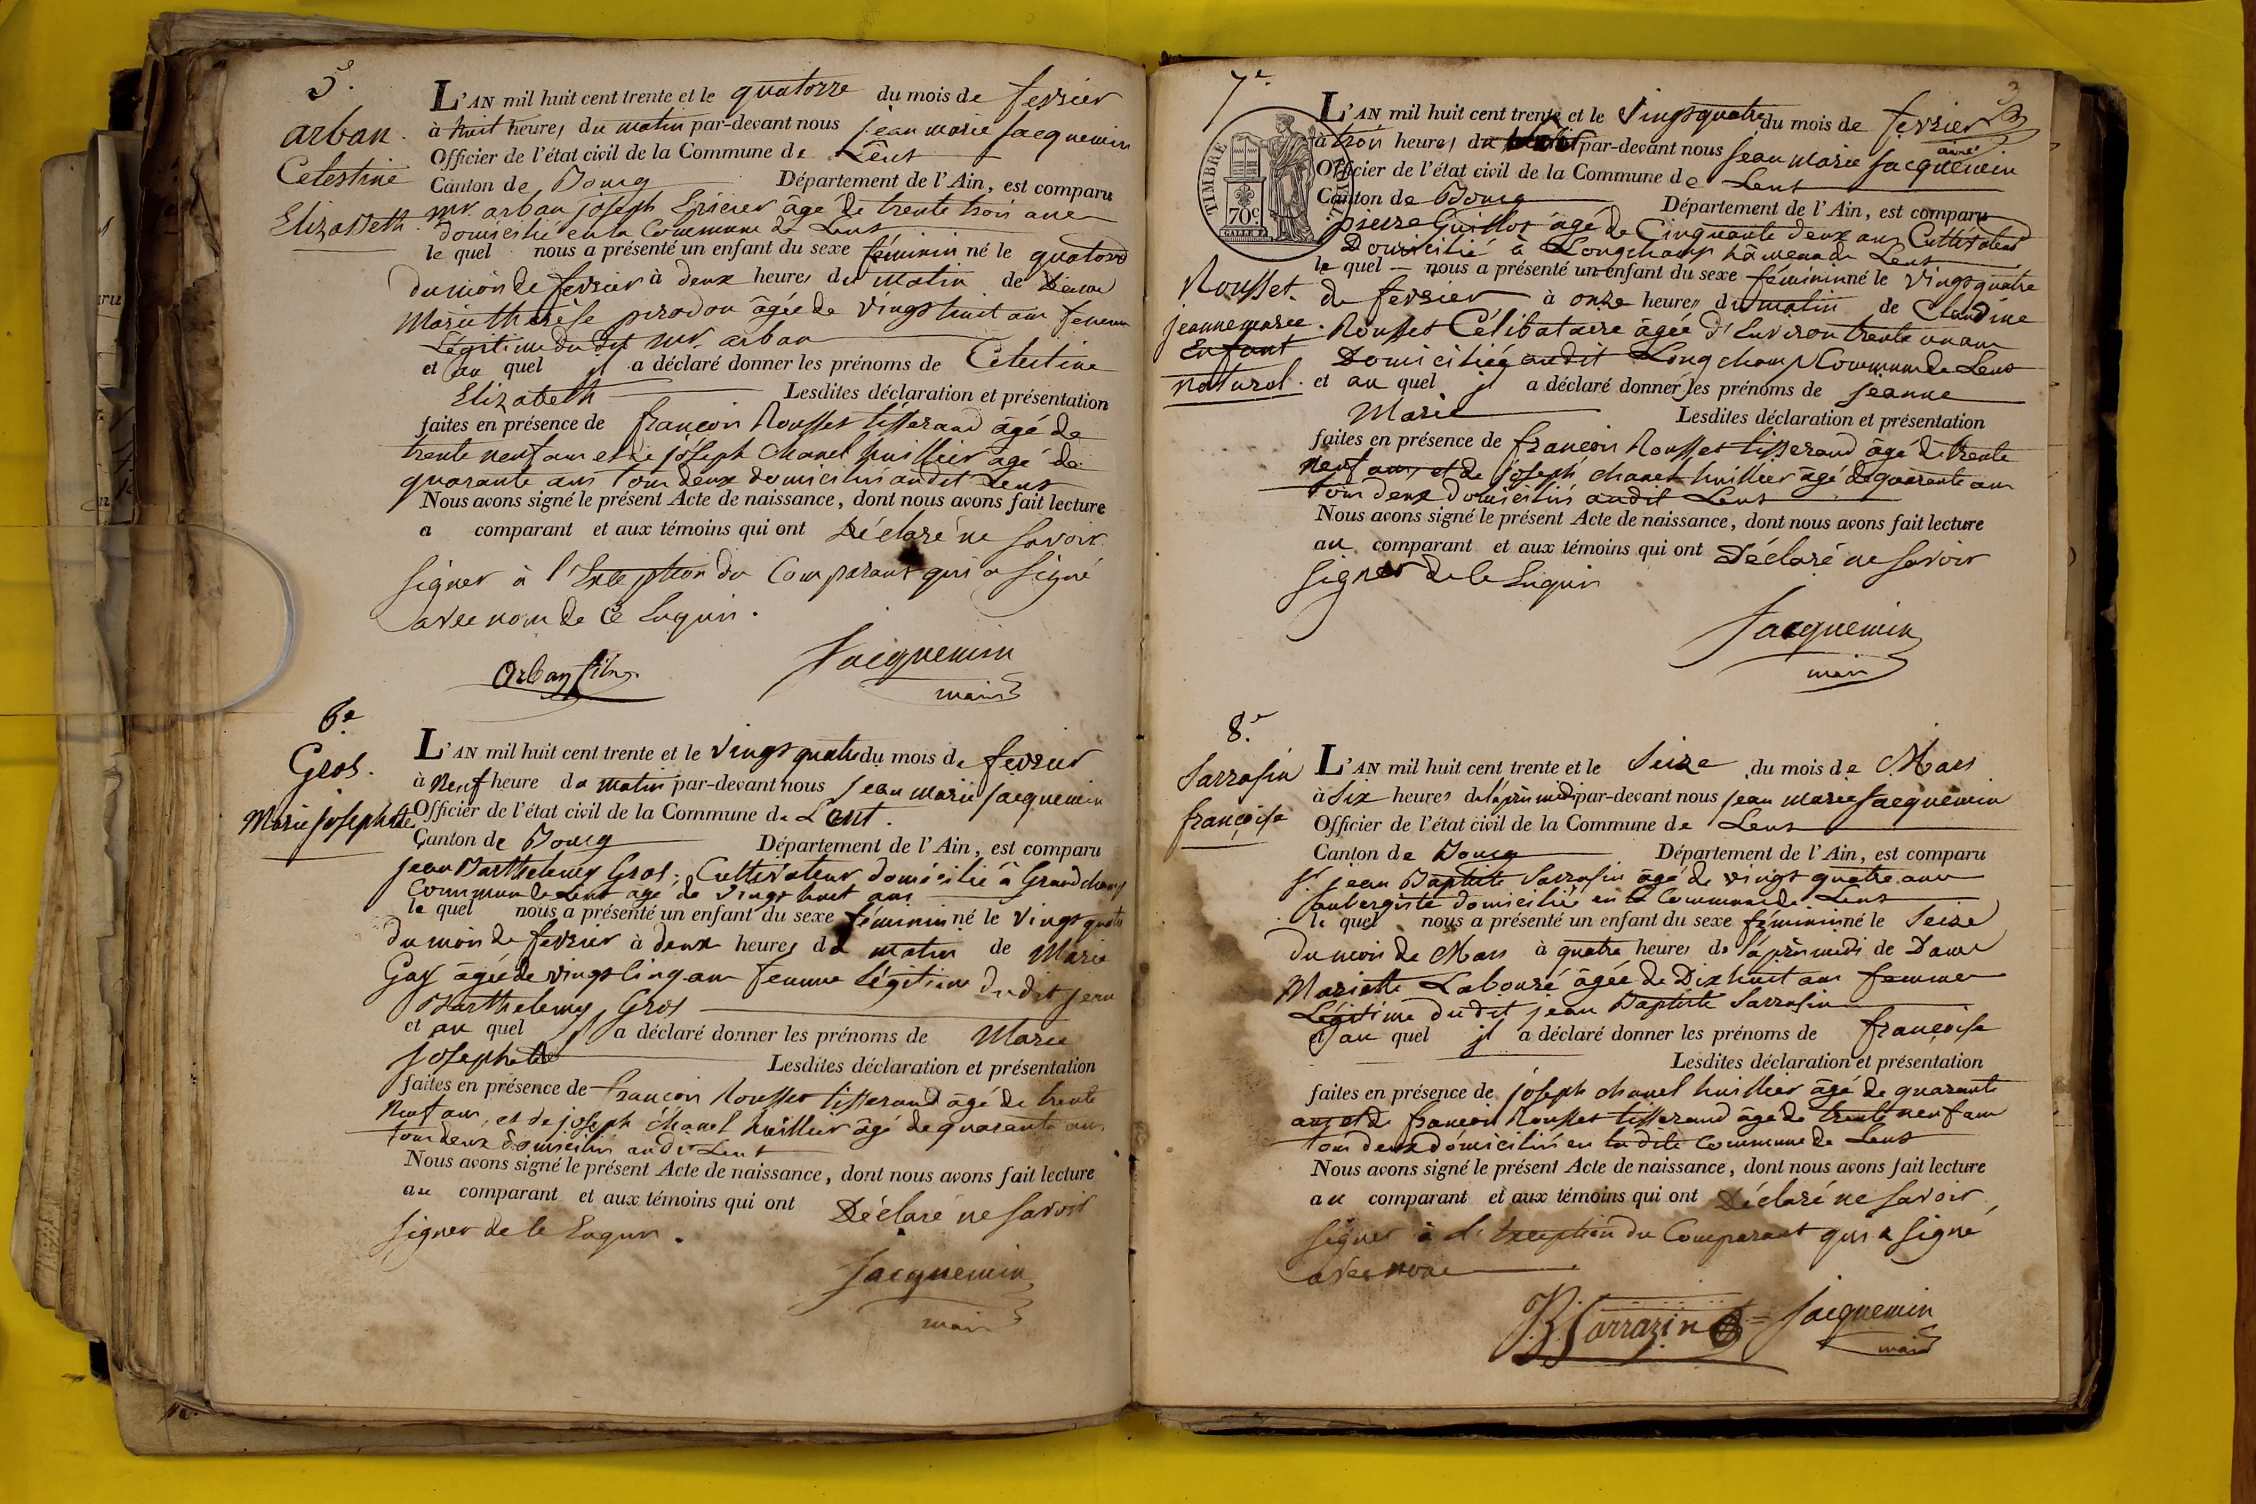 5e.
arban.
Celestine
Elizabeth.
L'AN mil huit cent trente et le quatorze du mois de fevrier
à huit heures du matin par-devant nous jean marie jacquemin
Officier de l'état civil de la Commune de Lent
Canton de Bourg Département de l'Ain, est comparu
mr. arban joseph Epicier âgé de trente trois ans
domicilié en la Commune de Lent
le quel nous a présenté un enfant du sexe féminin né le quatorze
du mois de fevrier à deux heures du matin de Dame
Marie therése perodon âgée de vingt huit ans femme
Légitime du dit mr. arban
et au quel il a déclaré donner les prénoms de Celestine
Elizabeth Lesdites déclaration et présentation
faites en présence de françois Rousset tisserand âgé de
trente neuf ans et de joseph chanel huillier âgé de
quarante ans tous deux domiciliés audit Lent
Nous avons signé le présent Acte de naissance, dont nous avons fait lecture
a comparant et aux témoins qui ont Déclaré ne savoir
signer à l'Exception du Comparant qui a signé
avec nous de ce Enquis.
Orban fils
Jacquemin
maire
6e
Gros.
Marie josephte
L'AN mil huit cent trente et le vingt quatre du mois de fevrier
à Neuf heure du matin par-devant nous jean marie jacquemin
Officier de l'état civil de la Commune de Lent.
Canton de Bourg Département de l'Ain, est comparu
jean Barthelemy Gros, Cultivateur domicilié à Grandchamp
Commune de Lent âgé de vingt huit ans
le quel nous a présenté un enfant du sexe féminin né le vingt quatre
du mois de fevrier à deux heures du matin de Marie
Gay âgée de vingt cinq ans femme légitime du dit jean
Barthelemy Gros
et au quel il a déclaré donner les prénoms de Marie
josephte Lesdites déclaration et présentation
faites en présence de françois Rousset tisserand âgé de trente
Neuf ans, et de joseph chanel huillier âgé de quarante ans
tous deux domiciliés audit Lent
Nous avons signé le présent Acte de naissance, dont nous avons fait lecture
au comparant et aux témoins qui ont Déclaré ne savoir
signer de le Enquis.
Jacquemin
maire
7e.
3
TIMBRE ROYAL
70c.
Rousset.
jeanne marie.
Enfant
naturel.
L'AN mil huit cent trente et le Vingt quatre du mois de fevrier
à trois heures du par-devant nous jean marie jacquemin ainé
Officier de l'état civil de la Commune de Lent
Canton de Bourg Département de l'Ain, est comparu
pierre Guillot âgé de Cinquante deux ans Cultivateur
Domicilié à Longchamp hameau de Lent
le quel nous a présenté un enfant du sexe féminin né le vingt quatre
de fevrier à onze heures du matin de Claudine
Rousset Célibataire âgée d'Environ trente un ans
Domiciliée audit Longchamp Commune de Lent
et au quel il a déclaré donner les prénoms de jeanne
Marie Lesdites déclaration et présentation
faites en présence de françois Rousset tisserand âgé de trente
Neuf ans, et de joseph chanel huillier âgé de quarante ans
tous deux domiciliés audit Lent
Nous avons signé le présent Acte de naissance, dont nous avons fait lecture
au comparant et aux témoins qui ont Déclaré ne savoir
signer de le Enquis
Jacquemin
maire
8e.
Sarrasin
françoise
L'AN mil huit cent trente et le Seize du mois de Mars
à Six heures de l'aprés midi par-devant nous jean marie jacquemin
Officier de l'état civil de la Commune de Lent
Canton de Bourg Département de l'Ain, est comparu
sr. jean Baptiste Sarrasin âgé de vingt quatre ans
aubergiste domicilié en la Commune de Lent
le quel nous a présenté un enfant du sexe féminin né le Seize
du mois de Mars à quatre heures de l'aprés midi de Dame
Mariette Labouré âgée de Dix huit ans femme
Légitime du dit jean Baptiste Sarrasin
et au quel il a déclaré donner les prénoms de françoise
Lesdites déclaration et présentation
faites en présence de joseph chanel huillier âgé de quarante
ans et de françois Rousset tisserand âgé de trente neuf ans
tous deux domiciliés en la dite Commune de Lent
Nous avons signé le présent Acte de naissance, dont nous avons fait lecture
au comparant et aux témoins qui ont Déclaré ne savoir
signer à l'Exception du Comparant qui a signé
avec nous
B Sarrazin
Jacquemin
maire